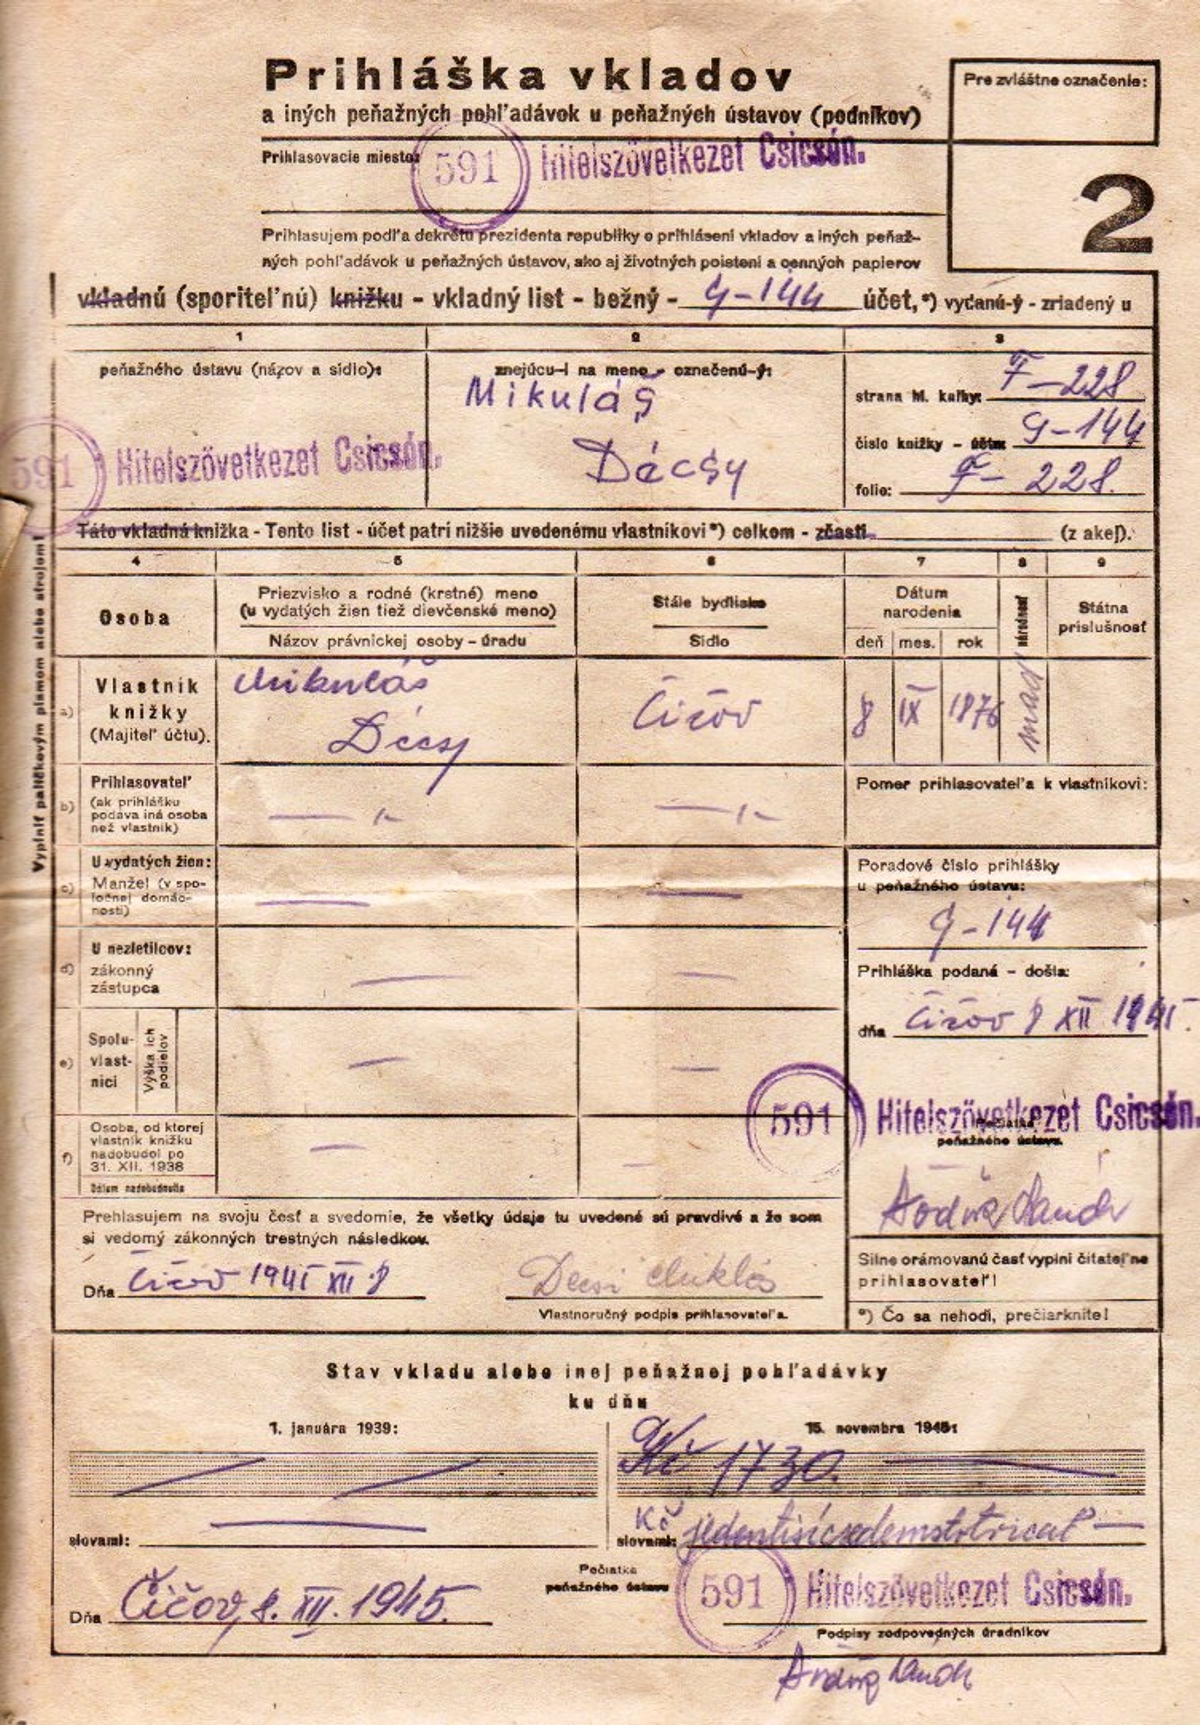 Prihláška vkladov
a iných peňažných pohľadávok u peňažných ústavov (podnikov)
Pre zvláštne označenie:
Prihlasovacie miesto:
591 Hitelszövetkezet Csicsón.
2
Prihlasujem podľa dekrétu prezidenta republiky o prihlásení vkladov a iných peňaž-
ných pohľadávok u peňažných ústavov, ako aj životných poistení a cenných papierov
vkladnú (sporiteľnú) knižku - vkladný list - bežný - G-144 účet,*) vydanú-ý - zriadený u
1
2
3
peňažného ústavu (názov a sídlo):
znejúcu-i na meno - označenú-ý:
Mikuláš
Décsy
strana M. knihy: F-228
číslo knižky - účtu: G-144
folio: F-228.
591 Hitelszövetkezet Csicsón.
Táto vkladná knižka - Tento list - účet patrí nižšie uvedenému vlastníkovi*) celkom - zčasti (z akej).
4
5
6
7
8
9
Osoba
Priezvisko a rodné (krstné) meno
(u vydatých žien tiež dievčenské meno)
Názov právnickej osoby - úradu
Stále bydlisko
Sídlo
Dátum
narodenia
deň mes. rok
národnosť
Štátna
príslušnosť
Vyplniť paličkovým písmom alebo strojom!
a)
Vlastník
knižky
(Majiteľ účtu).
Mikuláš
Décsy
Čičov
8 IX 1876
maď
b)
Prihlasovateľ
(ak prihlášku
podáva iná osoba
než vlastník)
— „-
— „-
Pomer prihlasovateľa k vlastníkovi:
c)
U vydatých žien:
Manžel (v spo-
ločnej domác-
nosti)
—
—
Poradové číslo prihlášky
u peňažného ústavu:
G-144
d)
U nezletilcov:
zákonný
zástupca
—
—
Prihláška podaná - došla:
dňa Čičov 8 XII 1945.
e)
Spolu-
vlast-
níci
Výška ich
podielov
—
—
591 Hitelszövetkezet Csicsón.
Pečiatka
peňažného ústavu.
f)
Osoba, od ktorej
vlastník knižku
nadobudol po
31. XII. 1938
Dátum nadobudnutia
—
—
Prehlasujem na svoju česť a svedomie, že všetky údaje tu uvedené sú pravdivé a že som
si vedomý zákonných trestných následkov.
Dňa Čičov 1945 XII 8
Decsi Miklós
Vlastnoručný podpis prihlasovateľa.
Silne orámovanú časť vyplní čitateľne
prihlasovateľ!
*) Čo sa nehodí, prečiarknite!
Stav vkladu alebo inej peňažnej pohľadávky
ku dňu
1. januára 1939:
15. novembra 1945:
Kč 1730.—
slovami: —
Kč
slovami: jedentisícsedemstotricať —
Pečiatka
peňažného ústavu
591 Hitelszövetkezet Csicsón.
Dňa Čičov, 8. XII. 1945.
Podpisy zodpovedných úradníkov